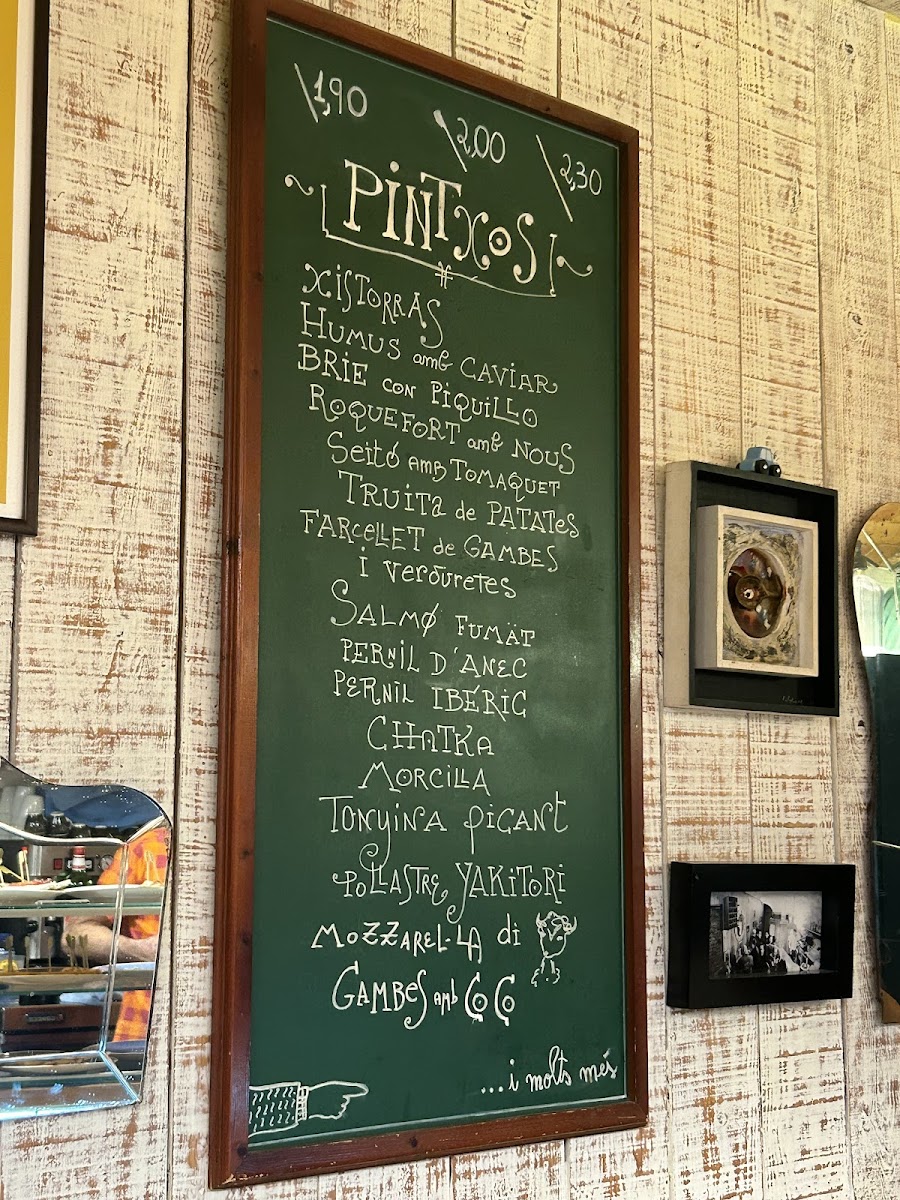 \1,90
\2,00
\2,30
PiNTXOS
XiSTORRAS
HUMUS amb CAVIAR
BRIE CON PiQUiLLO
ROQUEFORT amb NOUS
Seitó AMB TOMAQUET
TRUITa de PATATeS
FARCELLET de GAMBES
i verduretes
SALMØ FUMÄT
PERNiL D'ANEC
PERNiL IBÉRIC
CHATKA
MORCiLLA
TONyiNA piCANT
POLLASTRE YAKiTORi
MOZZAREL·LA di
GAMBES AMB COCO
...i molts més